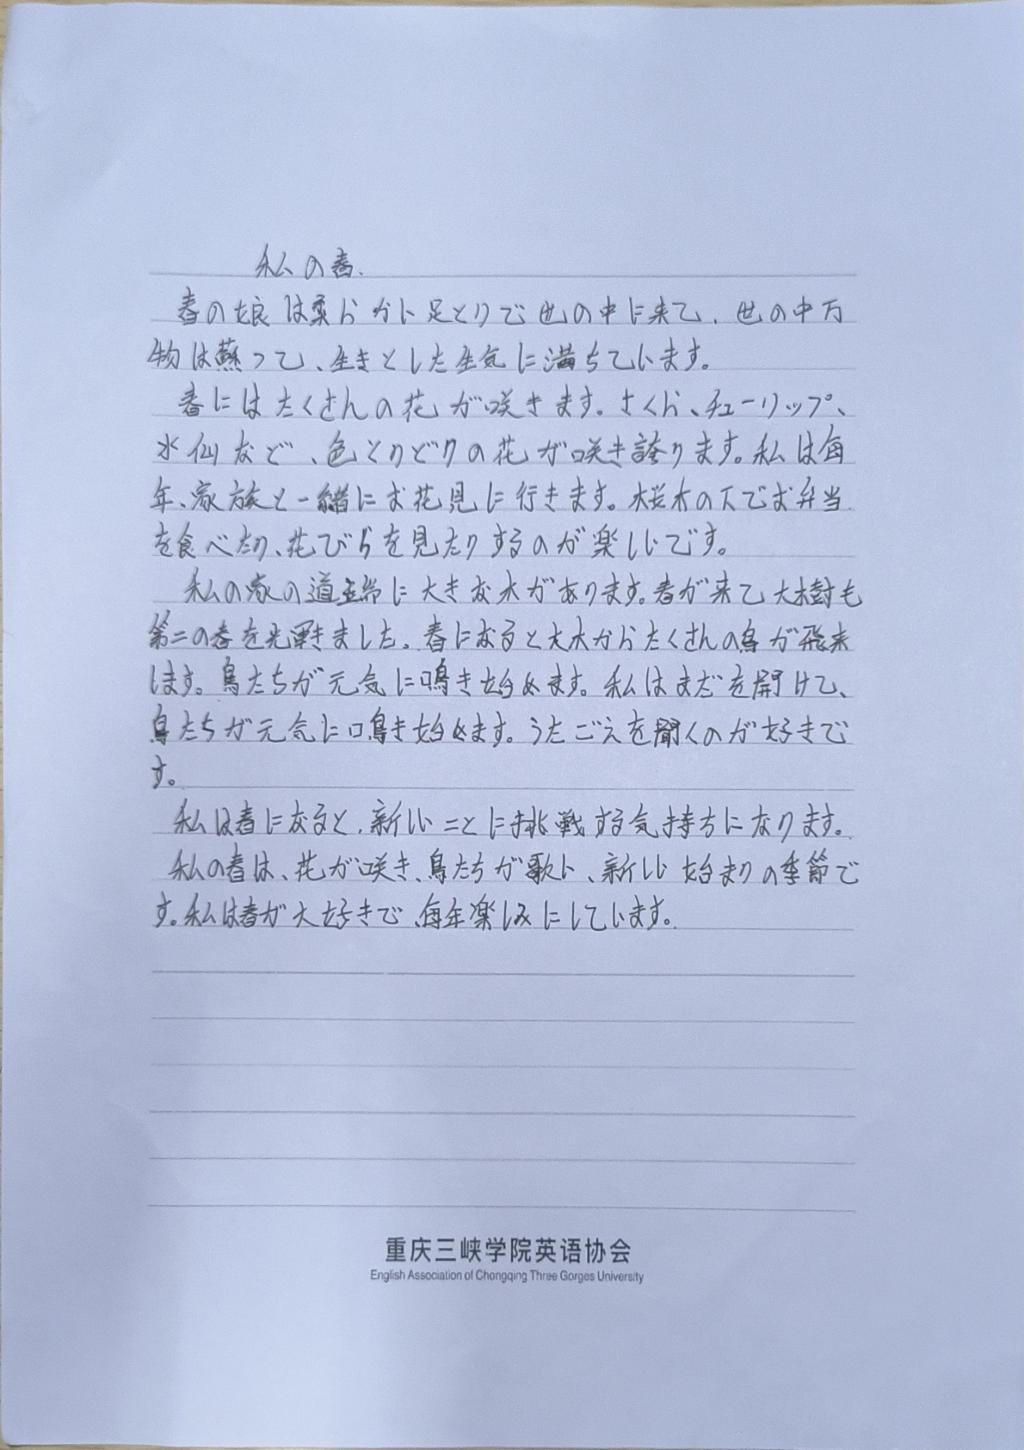 私の春.
春の娘は柔らかい足とりで世の中に来て、世の中万
物は蘇って、生きとした生気に満ちています。
春にはたくさんの花が咲きます。さくら、チューリップ、
水仙など、色とりどりの花が咲き誇ります。私は毎
年、家族と一緒にお花見に行きます。桜木の下でお弁当
を食べたり、花びらを見たりするのが楽しいです。
私の家の道端に大きな木があります。春が来て大樹も
第二の春を光輝きました。春になると大木からたくさんの鳥が飛来
します。鳥たちが元気に鳴き始めます。私はまどを開けて、
鳥たちが元気に鳴き始めます。うたごえを聞くのが好きで
す。
私は春になると、新しいことに挑戦する気持ちになります。
私の春は、花が咲き、鳥たちが歌い、新しい始まりの季節で
す。私は春が大好きで、毎年楽しみにしています。
重庆三峡学院英语协会
English Association of Chongqing Three Gorges University